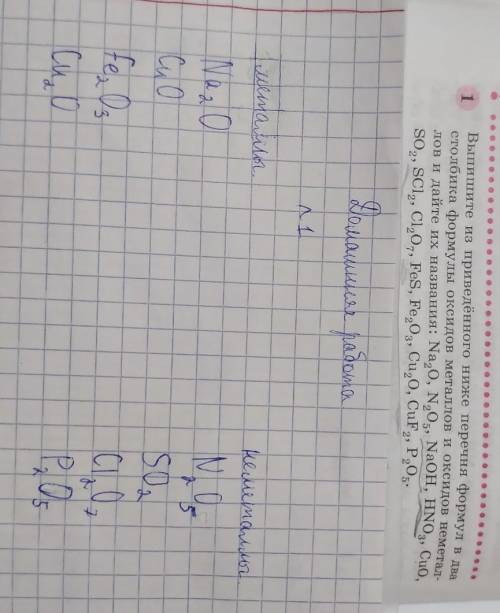 1 Выпишите из приведённого ниже перечня формул в два
столбика формулы оксидов металлов и оксидов неметал-
лов и дайте их названия: Na₂O, N₂O₅, NaOH, HNO₃, CuO,
SO₂, SCl₂, Cl₂O₇, FeS, Fe₂O₃, Cu₂O, CuF₂, P₂O₅.
Домашняя работа
№1
металлы неметаллы
Na₂O N₂O₅
CuO SO₂
Fe₂O₃ Cl₂O₇
Cu₂O P₂O₅